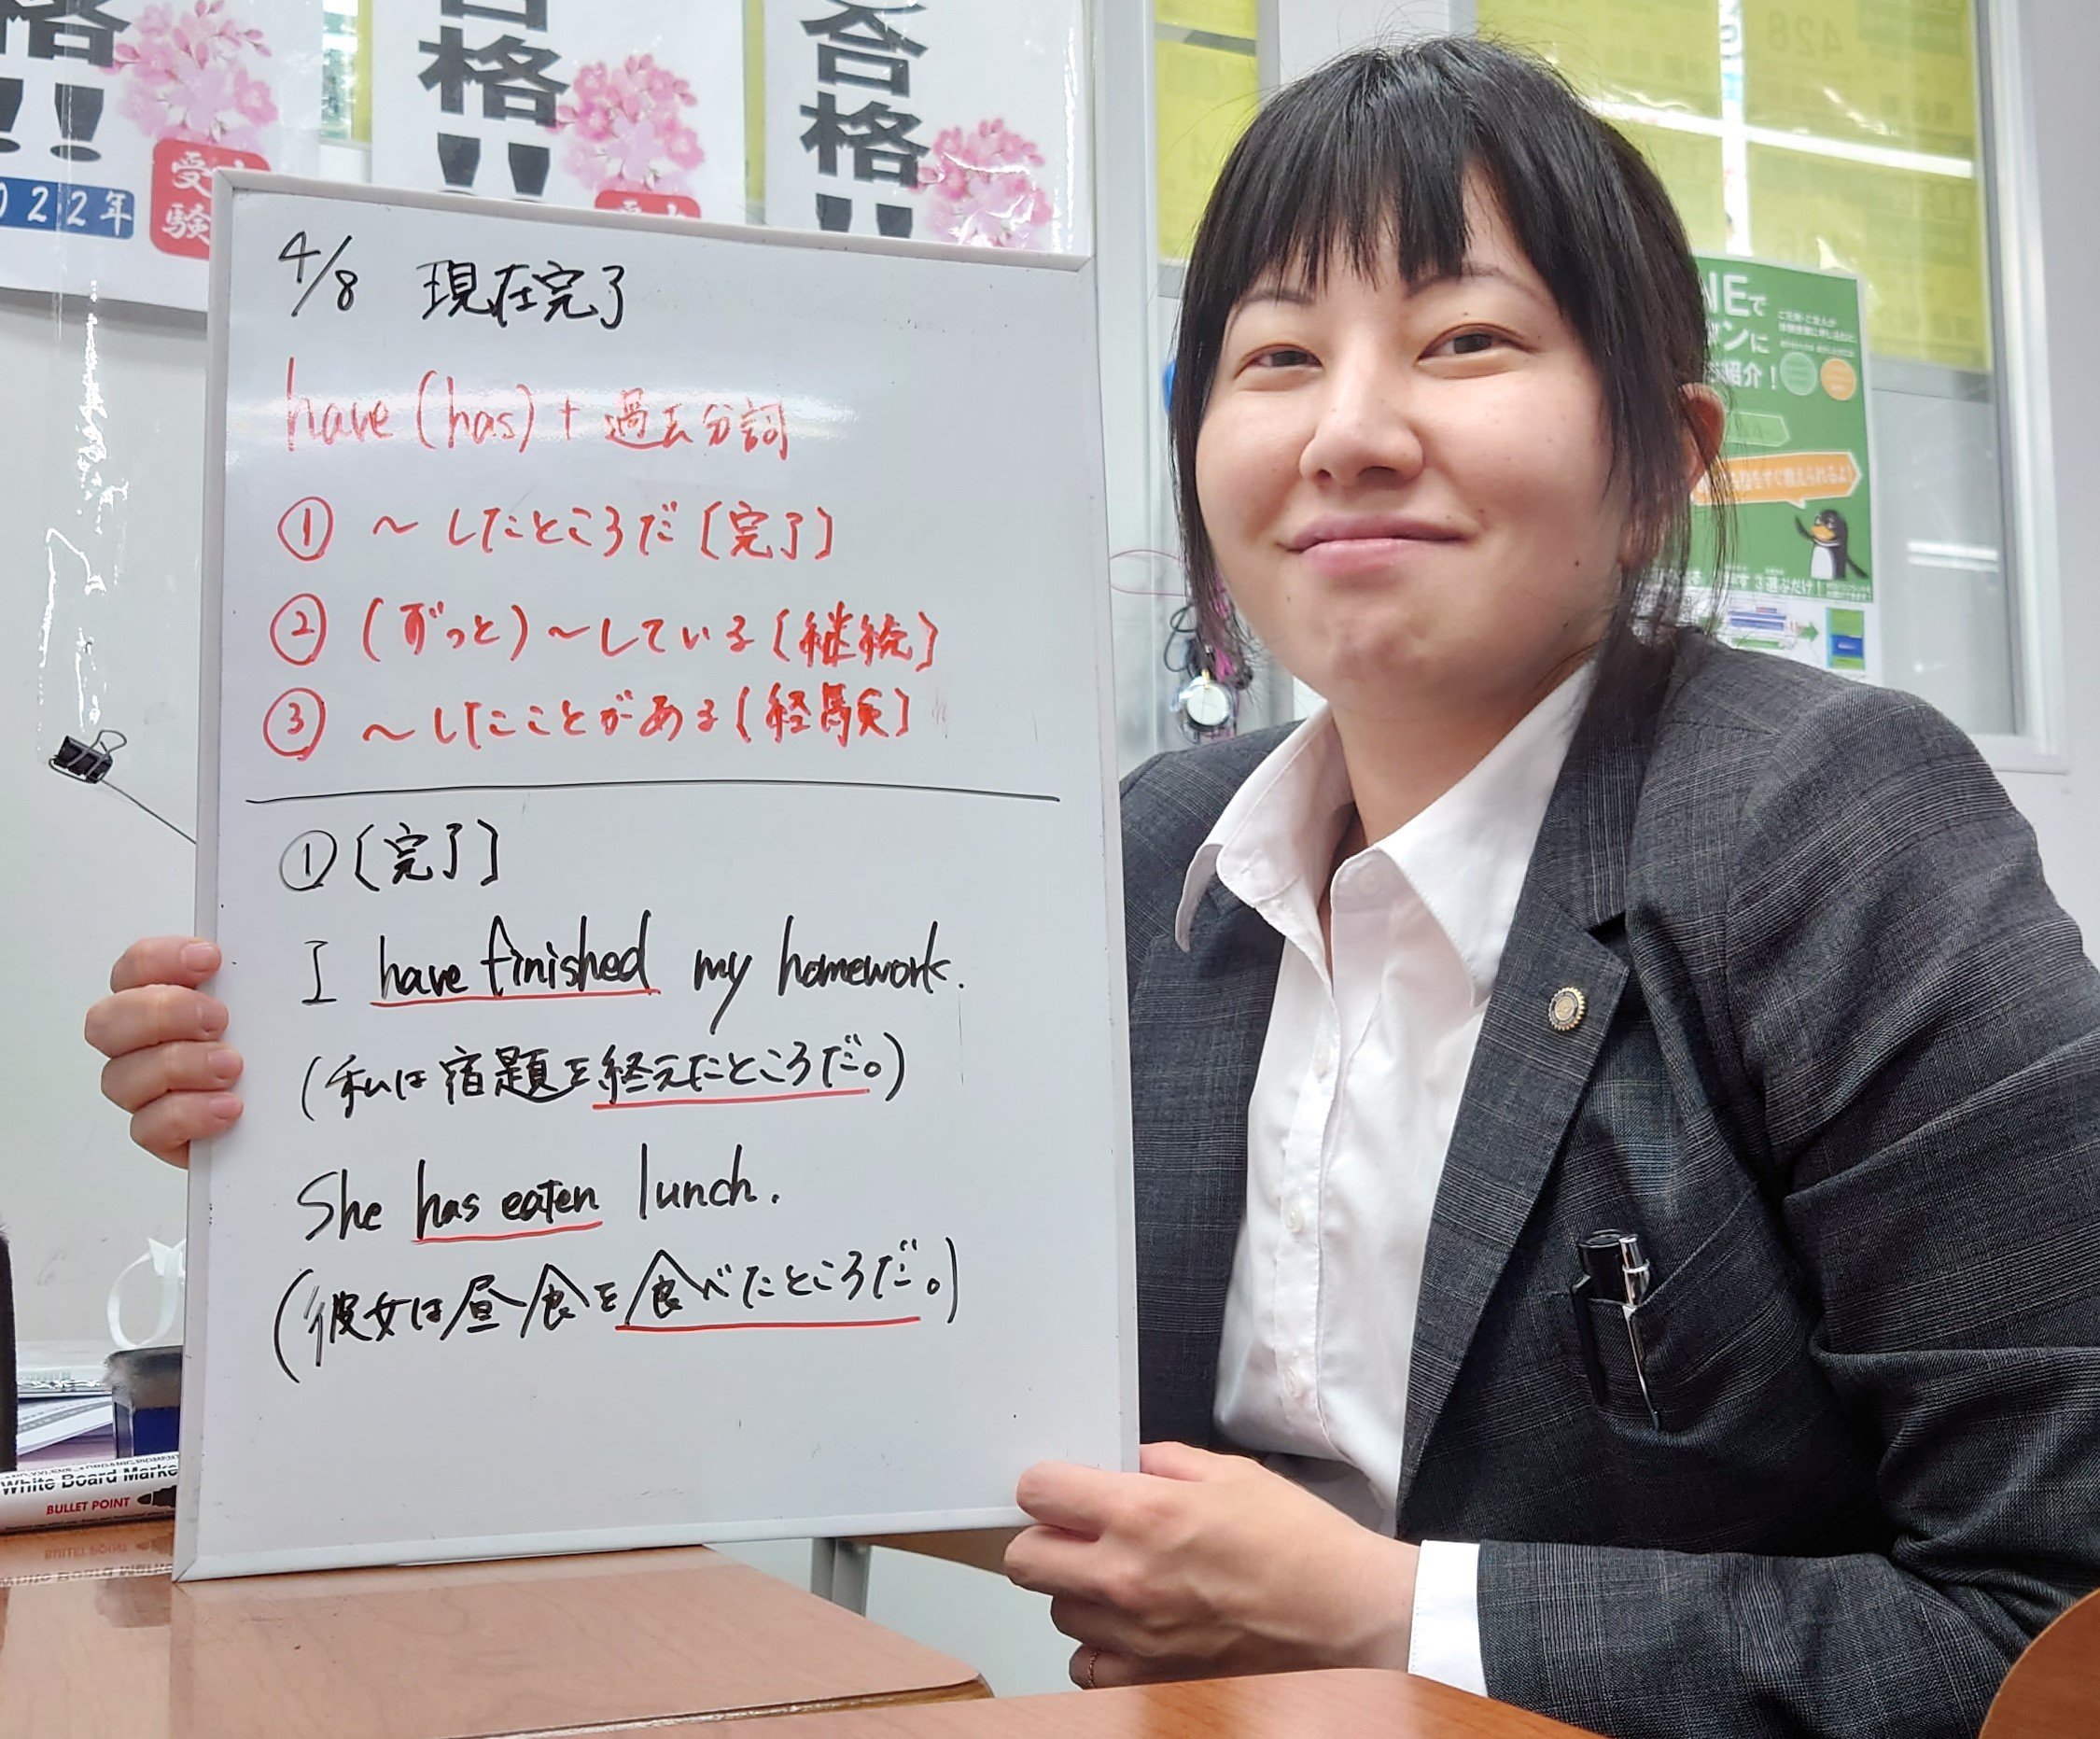 格!!
2022年
受験
合格!!
合格!!
4/8 現在完了
have (has) + 過去分詞
① ～したところだ〔完了〕
② (ずっと)～している〔継続〕
③ ～したことがある〔経験〕
①〔完了〕
I have finished my homework.
(私は宿題を終えたところだ。)
She has eaten lunch.
(彼女は昼食を食べたところだ。)
White Board Marke
BULLET POINT
428
NEで
ンに
紹介!